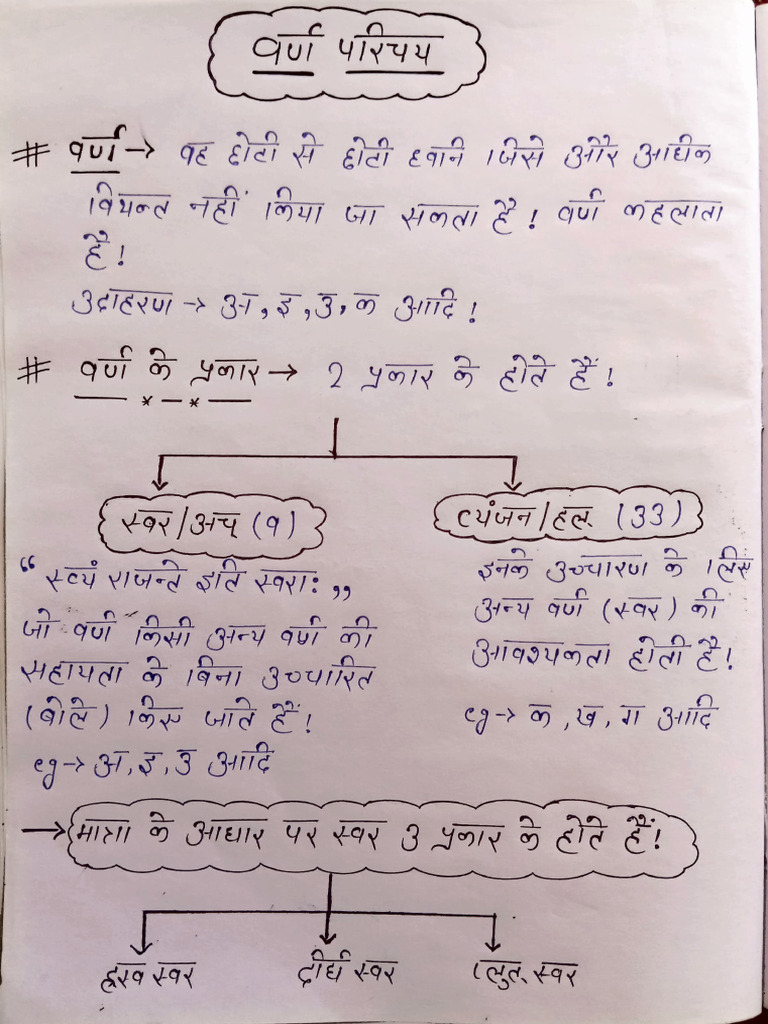 वर्ण परिचय
# वर्ण → वह छोटी से छोटी ध्वनि जिसे और अधिक
विभक्त नहीं किया जा सकता है! वर्ण कहलाता
है!
उदाहरण → अ, इ, उ, क आदि!
# वर्ण के प्रकार → 2 प्रकार के होते हैं!
स्वर/अच् (9)
व्यंजन/हल् (33)
“स्वयं राजन्ते इति स्वराः”
जो वर्ण किसी अन्य वर्ण की
सहायता के बिना उच्चारित
(बोले) किए जाते हैं!
eg → अ, इ, उ आदि
इनके उच्चारण के लिए
अन्य वर्ण (स्वर) की
आवश्यकता होती है!
eg → क, ख, ग आदि
→ मात्रा के आधार पर स्वर 3 प्रकार के होते हैं!
ह्रस्व स्वर
दीर्घ स्वर
प्लुत् स्वर